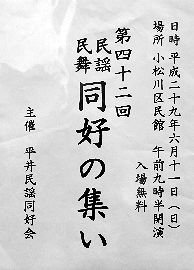 日時 平成二十九年六月十一日（日）
場所 小松川区民館 午前九時半開演
入場無料
第四十二回
民謡
民舞
同好の集い
主催 平井民謡同好会